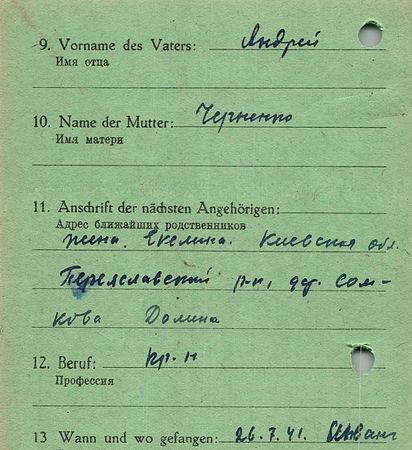 9. Vorname des Vaters: Андрей
Имя отца
10. Name der Mutter: Черненко
Имя матери
11. Anschrift der nächsten Angehörigen:
Адрес ближайших родственников
жена. Киевская обл.
Переяславский р-н, дер. Сом-
кова Долина
12. Beruf: кр-н
Профессия
13 Wann und wo gefangen: 26.7.41.